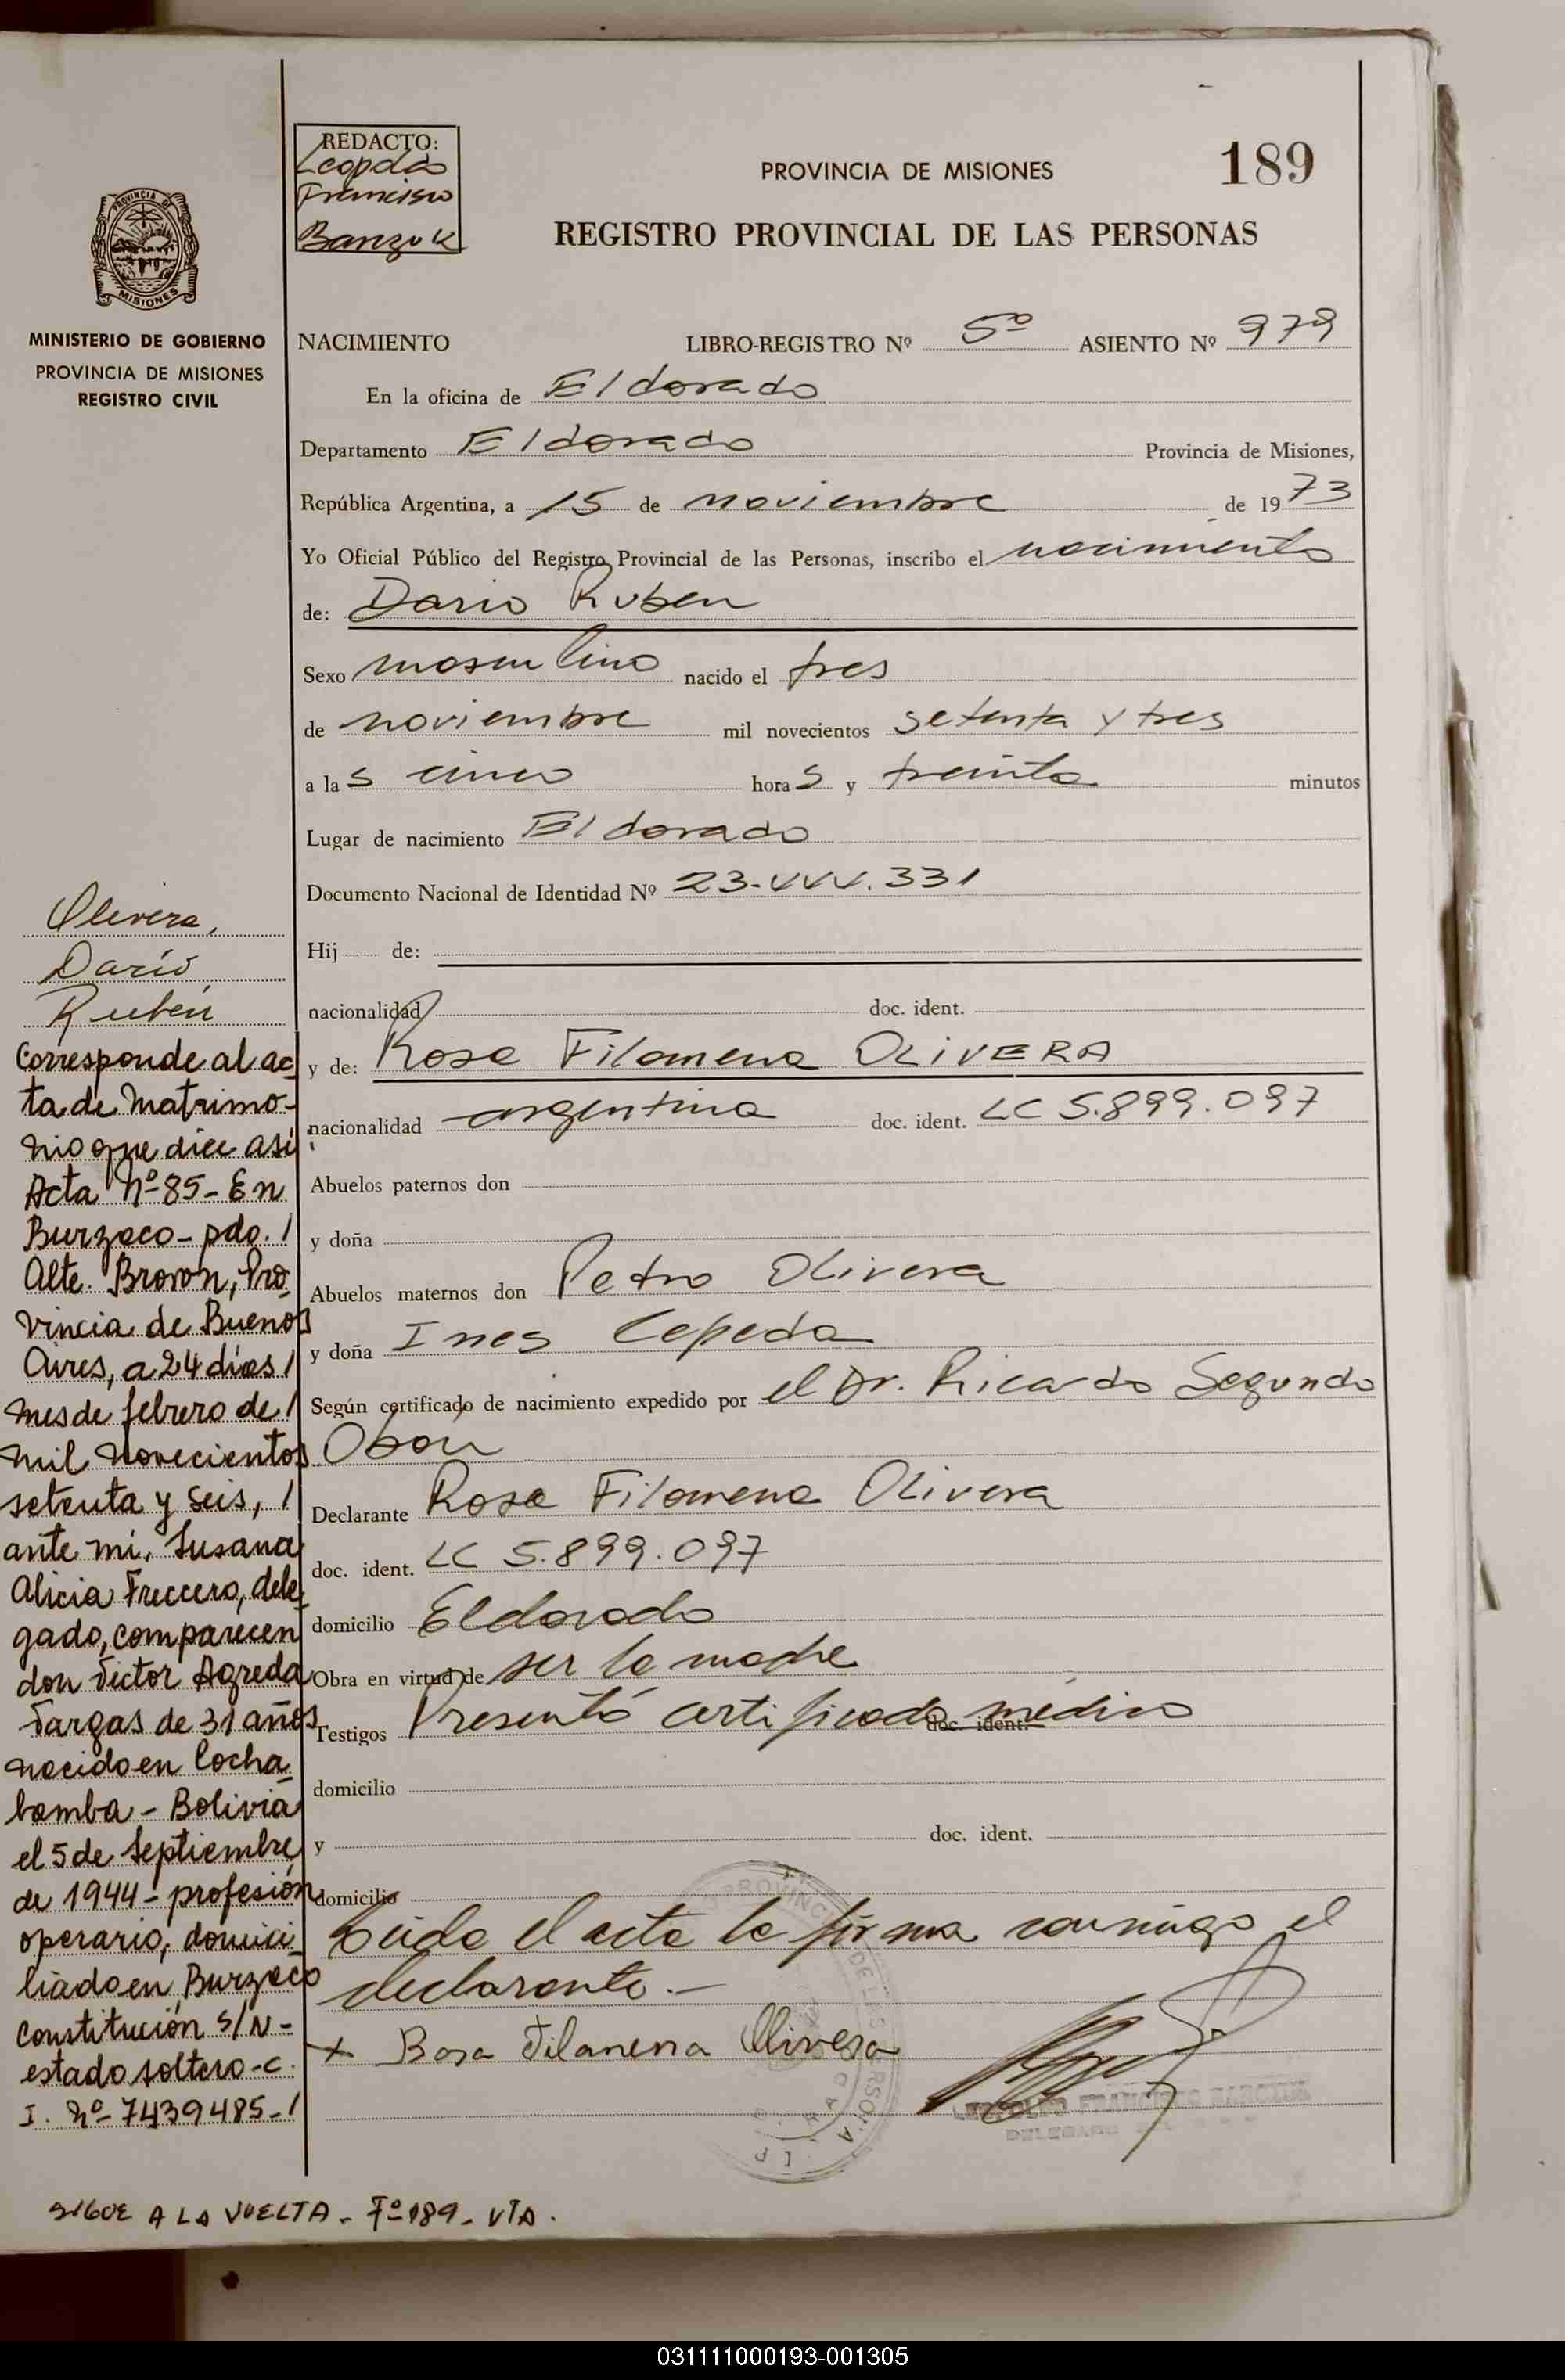 REDACTO:
Leopoldo
Francisco
Banzuk
PROVINCIA DE MISIONES
189
REGISTRO PROVINCIAL DE LAS PERSONAS
PROVINCIA DE
MISIONES
MINISTERIO DE GOBIERNO
PROVINCIA DE MISIONES
REGISTRO CIVIL
NACIMIENTO LIBRO-REGISTRO Nº 5º ASIENTO Nº 979
En la oficina de Eldorado
Departamento Eldorado Provincia de Misiones,
República Argentina, a 15 de noviembre de 1973
Yo Oficial Público del Registro Provincial de las Personas, inscribo el nacimiento
de: Dario Ruben
Sexo masculino nacido el tres
de noviembre mil novecientos setenta y tres
a las cinco horas y treinta minutos
Lugar de nacimiento Eldorado
Documento Nacional de Identidad Nº 23.444.331
Hij de:
nacionalidad doc. ident.
y de: Rosa Filomena OLIVERA
nacionalidad argentina doc. ident. LC 5.899.097
Abuelos paternos don
y doña
Abuelos maternos don Pedro Olivera
y doña Ines Cepeda
Según certificado de nacimiento expedido por el Dr. Ricardo Segundo
Obon
Declarante Rosa Filomena Olivera
doc. ident. LC 5.899.097
domicilio Eldorado
Obra en virtud de ser la madre
Testigos Presentó certificado médico doc. ident.
domicilio
y doc. ident.
domicilio
Leida el acta la firma conmigo el
declarante.-
x Rosa Filomena Olivera
LEOPOLDO FRANCISCO
DELEGADO
Olivera,
Darío
Rubén
Corresponde al ac
ta de Matrimo-
nio que dice así:
Acta Nº 85 - En
Burzaco - pdo. /
Alte. Brown, Pro-
vincia de Buenos
Aires, a 24 días /
mes de febrero de /
mil novecientos
setenta y seis, /
ante mí, Susana
Alicia Freccero, dele-
gado, comparecen
don Victor Agreda
Vargas de 31 años
nacido en Cocha-
bamba - Bolivia
el 5 de Septiembre
de 1944 - profesión
operario, domici-
liado en Burzaco
Constitución S/N -
estado soltero - C.
I. Nº 7439485 - /
SIGUE A LA VUELTA - Fº 189 - VTA.
031111000193-001305